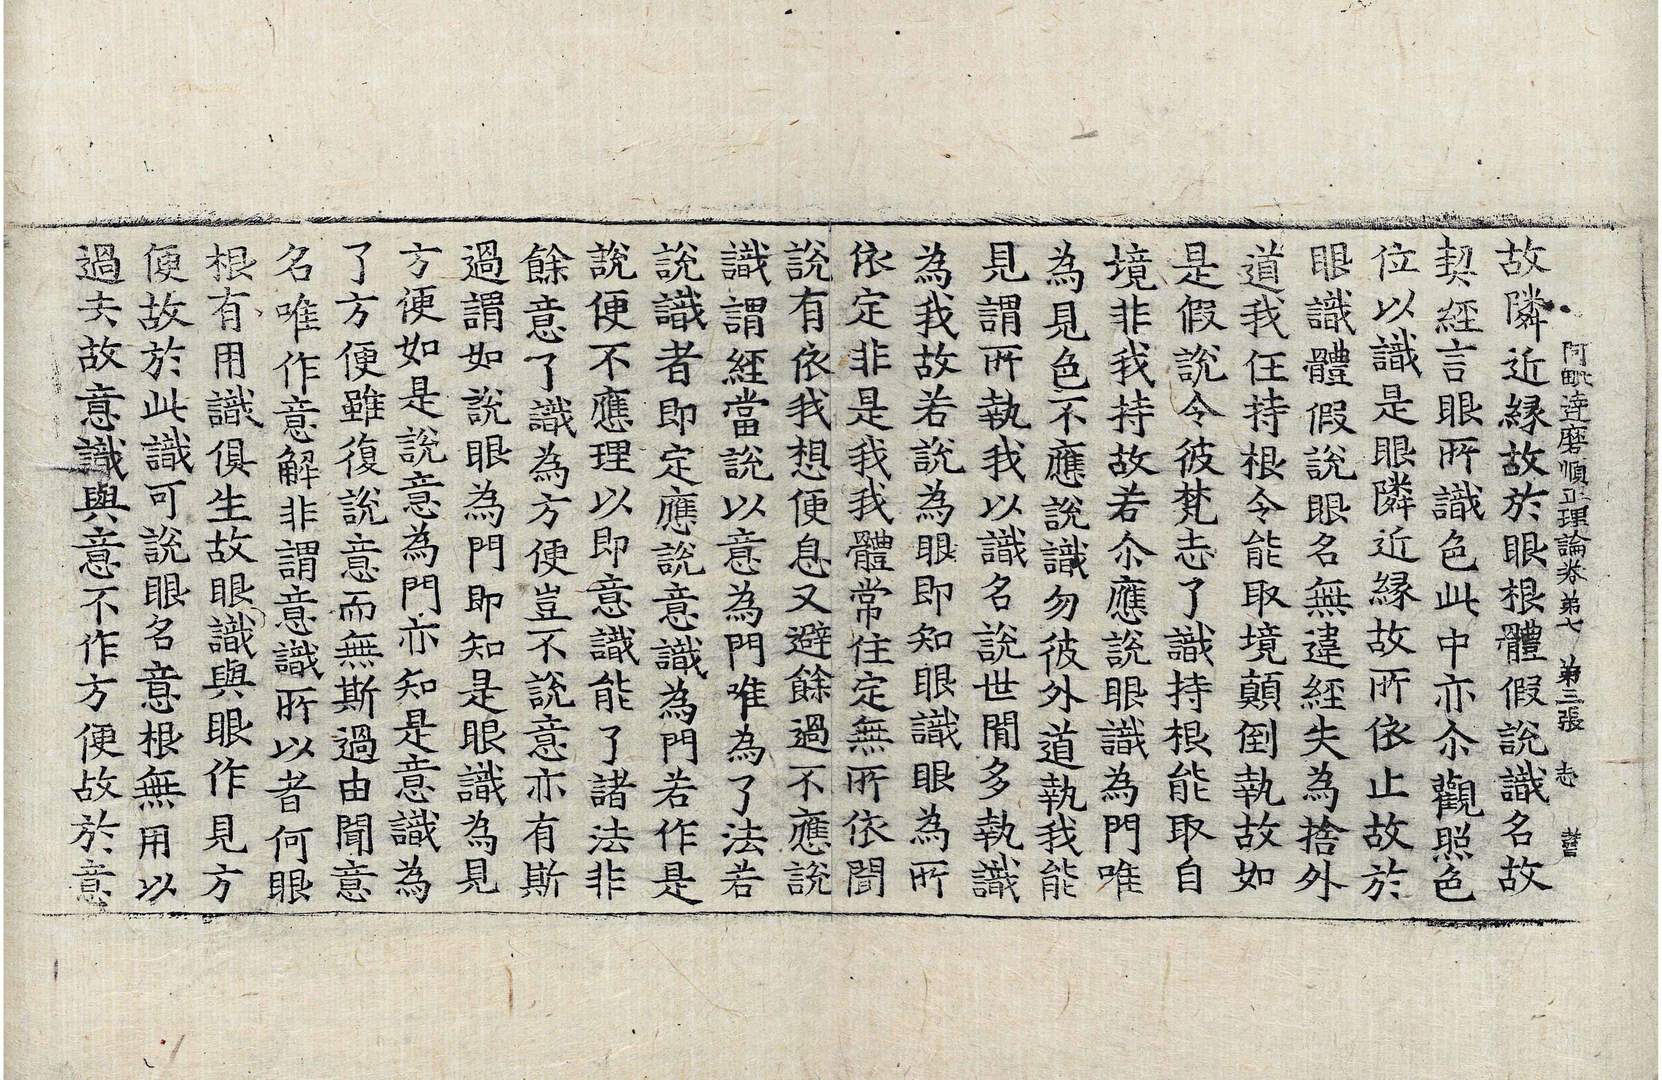 阿毗達磨順正理論卷第七 第三張 志
故隣近縁故於眼根體假說識名故
契經言眼所識色此中亦尒觀照色
位以識是眼隣近縁故所依止故於
眼識體假說眼名無違經失為捨外
道我任持根令能取境顛倒執故如
是假說令彼梵志了識持根能取自
境非我持故若尒應說眼識為門唯
為見色不應說識勿彼外道執我能
見謂所執我以識名說世間多執識
為我故若說為眼即知眼識眼為所
依定非是我我體常住定無所依聞
說有依我想便息又避餘過不應說
識謂經當說以意為門唯為了法若
說識者即定應說意識為門若作是
說便不應理以即意識能了諸法非
餘意了識為方便豈不說意亦有斯
過謂如說眼為門即知是眼識為見
方便如是說意為門亦知是意識為
了方便雖復說意而無斯過由聞意
名唯作意解非謂意識所以者何眼
根有用識俱生故眼識與眼作見方
便故於此識可說眼名意根無用以
過去故意識與意不作方便故於意